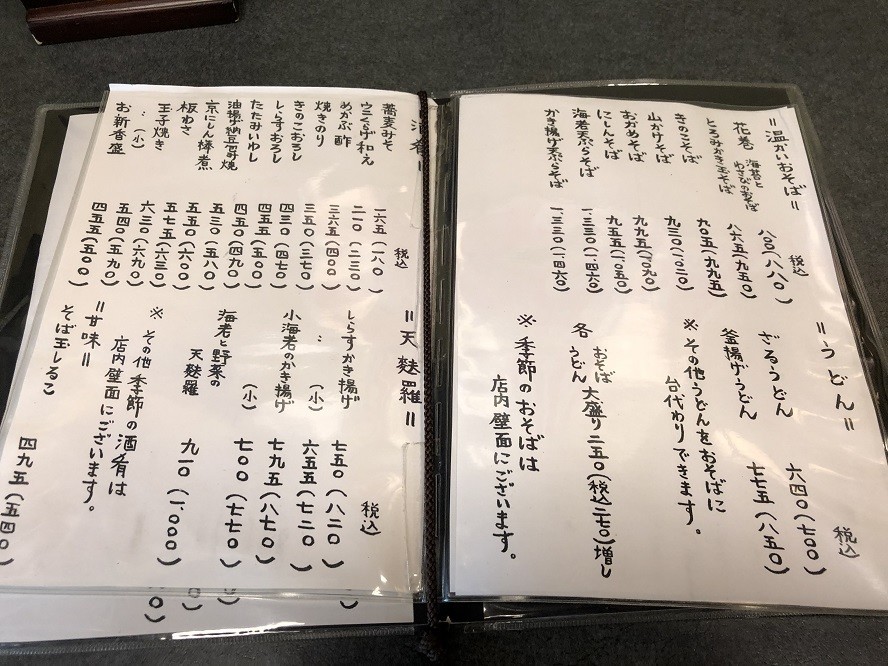 =温かいおそば=
税込
花巻 海苔とわさびのおそば 八〇〇(八八〇)
とろみかき玉そば 八六五(九五〇)
きのこそば 九〇五(九九五)
山かけそば 九三〇(一.〇二〇)
おかめそば 九九五(一.〇九〇)
にしんそば 九五五(一.〇五〇)
海老天ぷらそば 一.三三〇(一.四六〇)
かき揚げ天ぷらそば 一.三三〇(一.四六〇)
=うどん=
税込
ざるうどん 六四〇(七〇〇)
釜揚げうどん 七七五(八五〇)
※その他うどんをおそばに
台代わりできます。
各 おそば うどん 大盛り二五〇(税込二七〇)増し
※季節のおそばは
店内壁面にございます。
=酒肴=
税込
蕎麦みそ 一六五(一八〇)
ウニくらげ和え 二一〇(二三〇)
めかぶ酢 三六五(四〇〇)
焼きのり 三五〇(三七〇)
きのこおろし 四三〇(四七〇)
しらすおろし 四五五(五〇〇)
たたみいわし 四五〇(四九〇)
油揚げ納豆包み焼 五三〇(五八〇)
京にしん棒煮 五五〇(六〇〇)
板わさ 五七五(六三〇)
玉子焼き 六三〇(六九〇)
〃(小) 五四〇(五九〇)
お新香盛 四五五(五〇〇)
=天麩羅=
税込
しらすかき揚げ 七五〇(八二〇)
〃(小) 六五五(七二〇)
小海老のかき揚げ 七九五(八七〇)
(小) 七〇〇(七七〇)
海老と野菜の
天麩羅 九一〇(一.〇〇〇)
※その他季節の酒肴は
店内壁面にございます。
=甘味=
そば玉しるこ 四九五(五四〇)